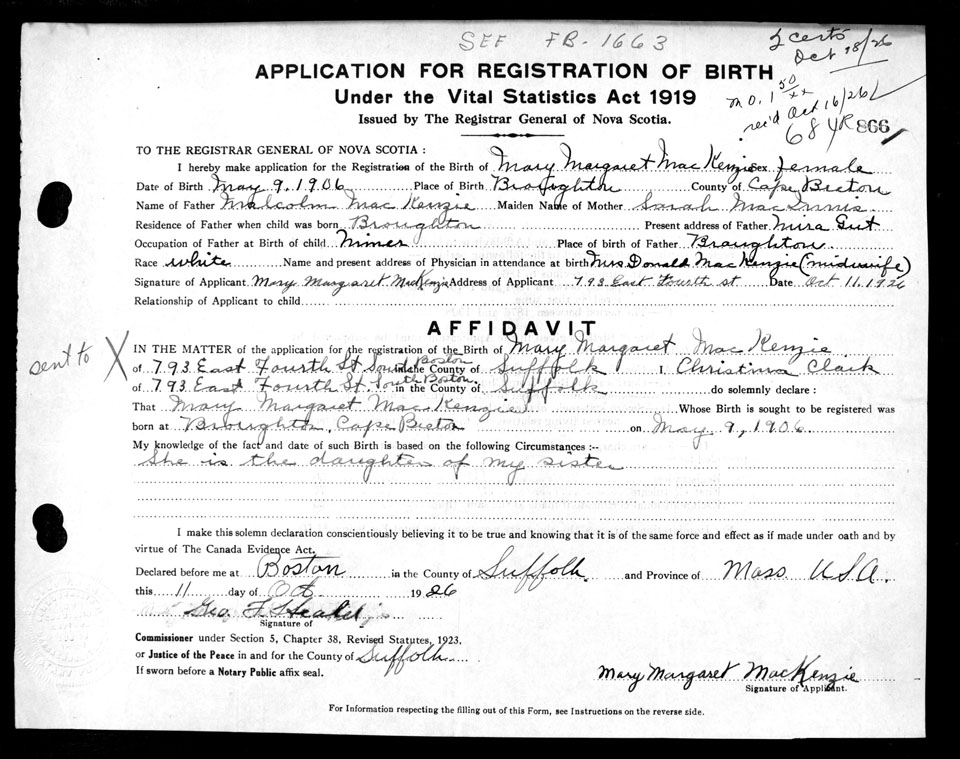 SEE FB-1663
2 certs
Oct 18/26
M.O. 1 50/xx
rec'd Oct 16/26
684R 866
APPLICATION FOR REGISTRATION OF BIRTH
Under the Vital Statistics Act 1919
Issued by The Registrar General of Nova Scotia.
TO THE REGISTRAR GENERAL OF NOVA SCOTIA :
I hereby make application for the Registration of the Birth of Mary Margaret Mac Kenzie Sex female
Date of Birth May 9, 1906 Place of Birth Broughton County of Cape Breton
Name of Father Malcolm Mac Kenzie Maiden Name of Mother Sarah MacInnis
Residence of Father when child was born Broughton Present address of Father Mira Gut
Occupation of Father at Birth of child Miner Place of birth of Father Broughton
Race white Name and present address of Physician in attendance at birth Mrs Donald MacKenzie (midwife)
Signature of Applicant Mary Margaret MacKenzie Address of Applicant 793 East Fourth st Date Oct 11, 1926
Relationship of Applicant to child
AFFIDAVIT
sent to X
IN THE MATTER of the application for the registration of the Birth of Mary Margaret Mac Kenzie
of 793 East Fourth St. South Boston in the County of Suffolk I, Christina Clark
of 793 East Fourth St. South Boston, in the County of Suffolk do solemnly declare :
That Mary Margaret Mac Kenzie Whose Birth is sought to be registered was
born at Broughton, Cape Breton on May 9, 1906
My knowledge of the fact and date of such Birth is based on the following Circumstances :--
She is the daughter of my sister
I make this solemn declaration conscientiously believing it to be true and knowing that it is of the same force and effect as if made under oath and by
virtue of The Canada Evidence Act.
Declared before me at Boston in the County of Suffolk and Province of Mass U.S.A.
this 11 day of Oct 1926
Geo. F.
Signature of
Commissioner under Section 5, Chapter 38, Revised Statutes, 1923,
or Justice of the Peace in and for the County of Suffolk
If sworn before a Notary Public affix seal.
Mary Margaret MacKenzie
Signature of Applicant.
For Information respecting the filling out of this Form, see Instructions on the reverse side.